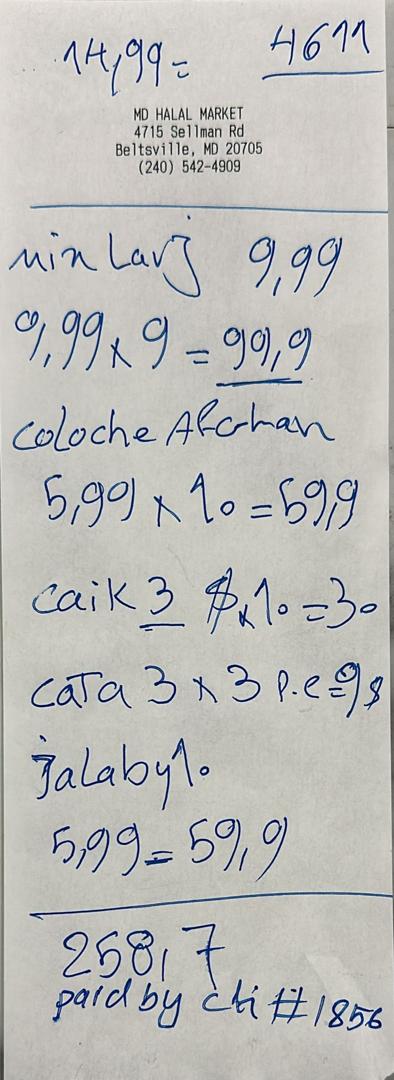 14,99= 4611
MD HALAL MARKET
4715 Sellman Rd
Beltsville, MD 20705
(240) 542-4909
mix Larj 9,99
9,99 x 9 = 99,9
coloche Afghan
5,99 x 10 = 59,9
caik 3 $ x 10 = 30
cata 3 x 3 p.e = 9 $
Jalaby 10
5,99 = 59,9
258,7
paid by ck #1856